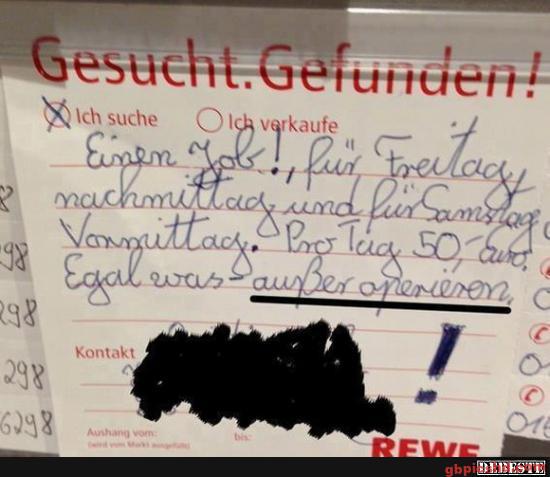 Gesucht.Gefunden!
Ich suche Ich verkaufe
Einen Job!, für Freitag,
nachmittag und für Samstag
Vormittag. Pro Tag 50,- Euro.
Egal was - außer operieren.
!
298
298
298
6298
Kontakt
Aushang vom: bis:
(wird vom Markt ausgefüllt)
REWE
DEBESTE